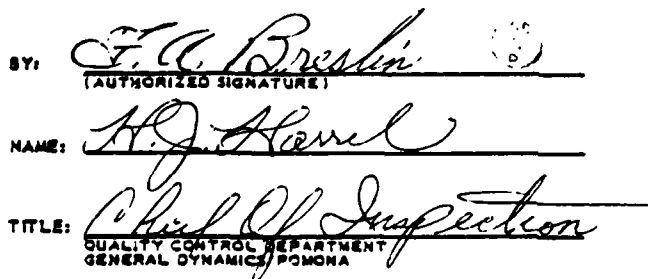 BY: F. A. Breslin
(AUTHORIZED SIGNATURE)
NAME: H. J. Harrel
TITLE: Chief Of Inspection
QUALITY CONTROL DEPARTMENT
GENERAL DYNAMICS/POMONA